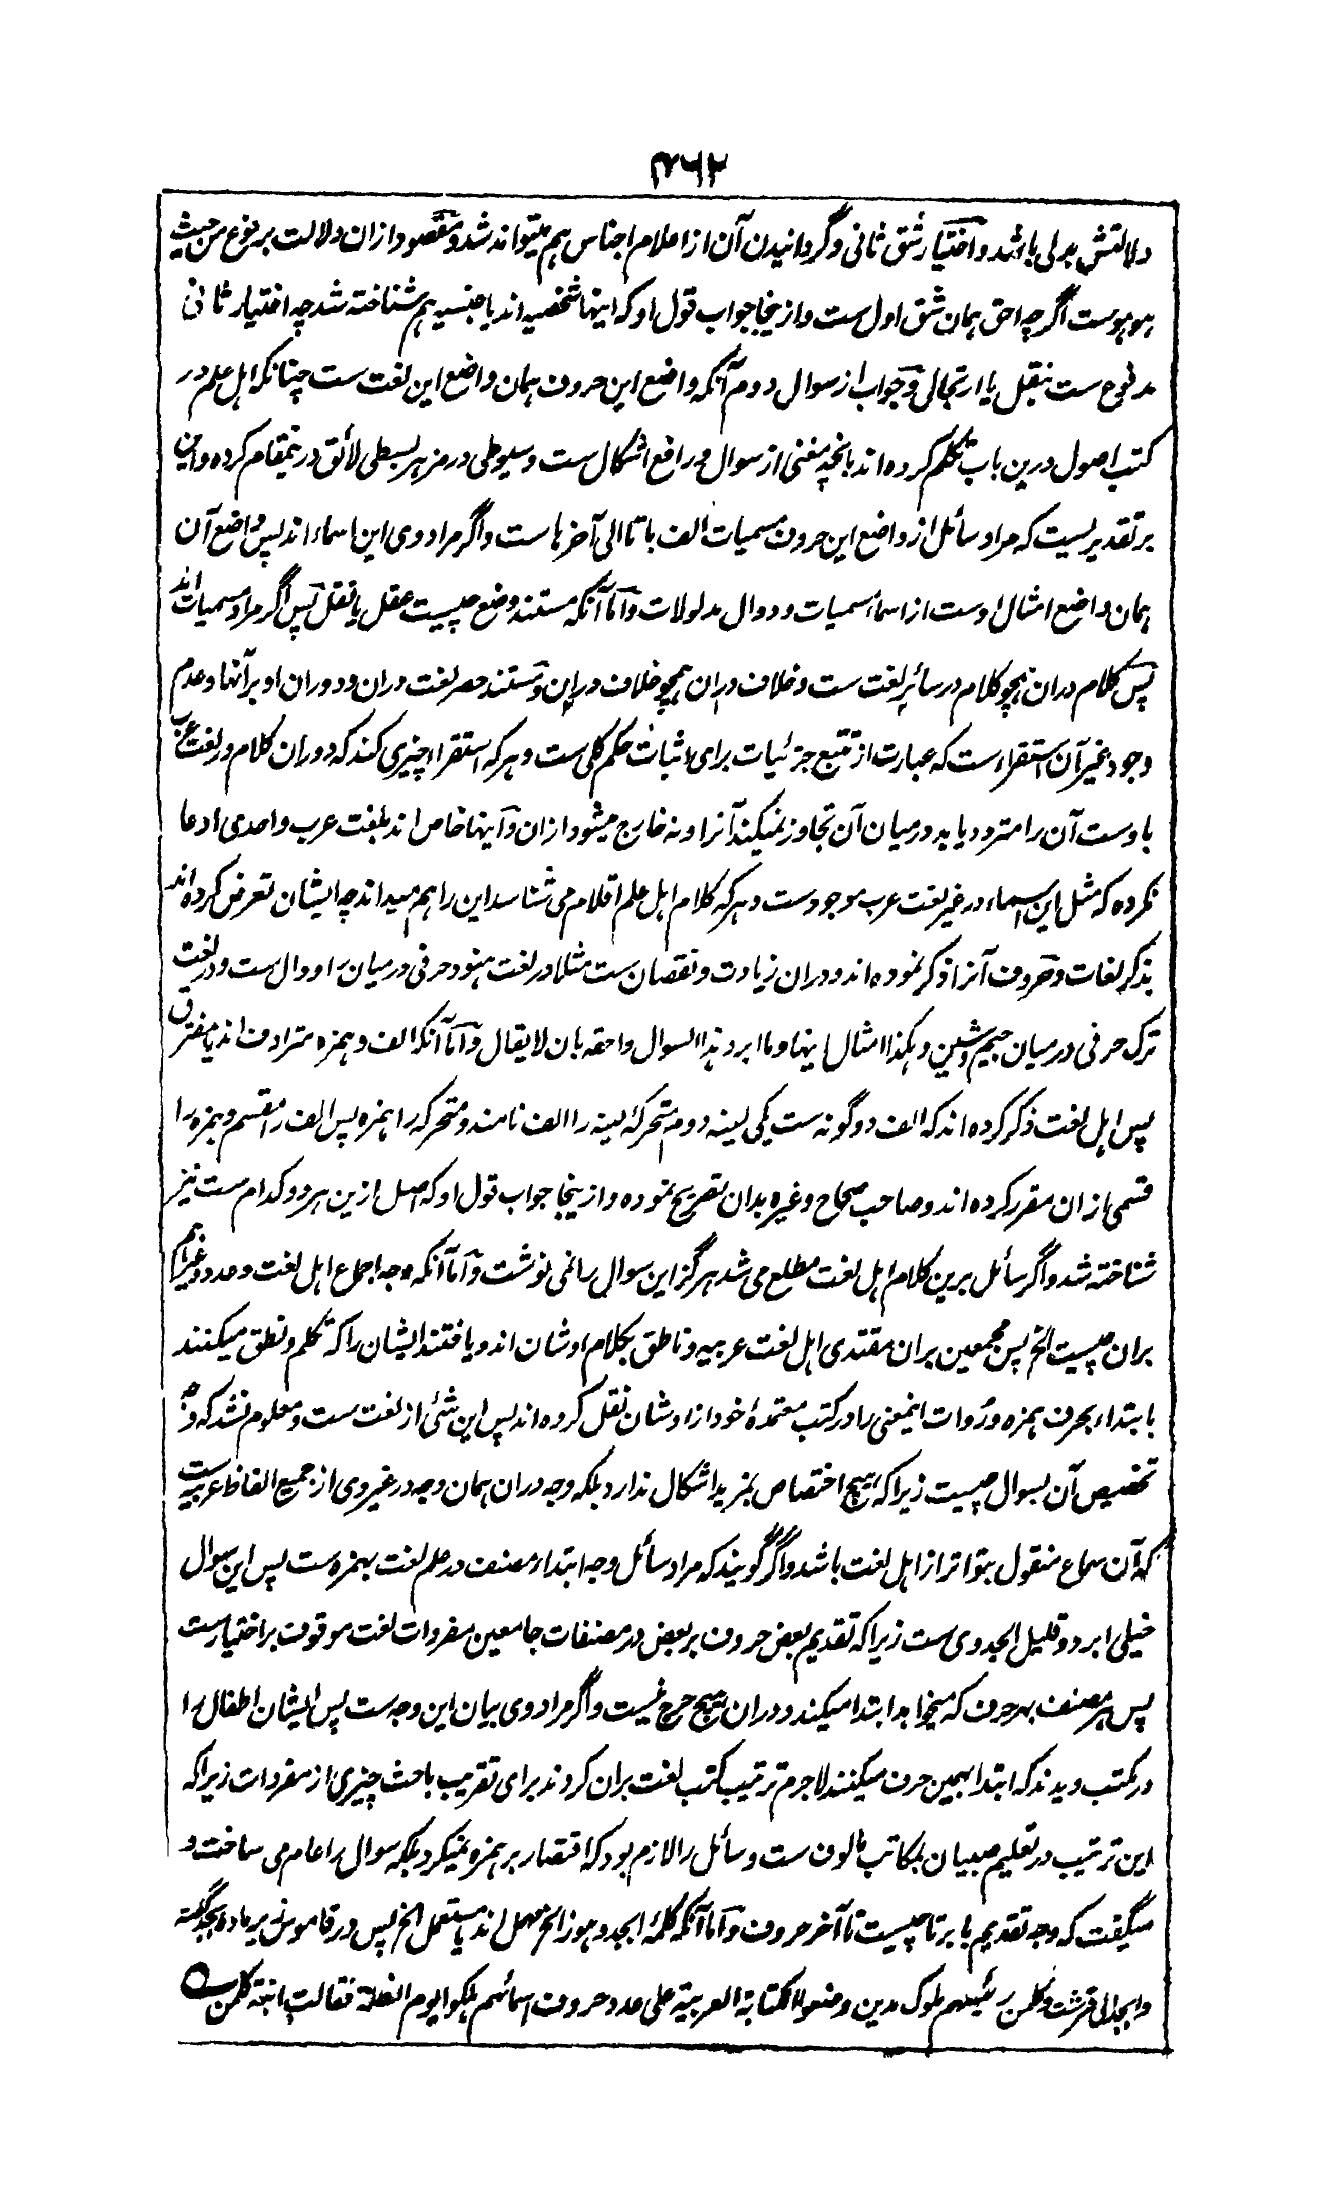 ۴۶۲
دلالتش بدلی باشد و اختیار شق ثانی و گردانیدن آن از اعلام اجناس هم میتواند شد و مقصود ازان دلالت بر نوع من حیث
هو هوست اگرچه احق همان شق اول ست و ازینجا جواب قول او که اینها شخصیه اند یا جنسیه هم شناخته شد چه اختیار ثانی
مدفوع ست بنقل یا ارتجالی و جواب از سوال دوم آنکه واضع این حروف همان واضع این لغت ست چنانکه اهل علم در
کتب اصول درین باب تکلم کرده اند بانچه مغنی از سوال و رافع اشکال ست و سیوطی در مزهر بسطی لائق درینمقام کرده و این
بر تقدیریست که مراد سائل از واضع این حروف مسمیات الف با تا الی آخرهاست و اگر مراد وی این اسماء اند پس واضع آن
همان واضع امثال اوست از اسماء مسمیات و دوال مدلولات و اما آنکه مستند وضع چیست عقل یا نقل پس اگر مراد مسمیات اند
پس کلام دران همچو کلام در سائر لغت ست و خلاف دران همچو خلاف دران و مستند حصر لغت دران و دوران او بر آنها و عدم
وجود غیر آن استقراء ست که عبارت از تتبع جزئیات برای اثبات حکم کلی ست و هر که استقراء چیزی کند که دوران کلام در لغت عرب
باوست آن را متردد یابد درمیان آن تجاوز نمیکند آنرا و نه خارج میشود ازان و اینها خاص اند بلغت عرب و احدی ادعا
نکرده که مثل این اسماء در غیر لغت عرب موجودست و هر که کلام اهل علم اقلام می شناسد این را هم میداند چه ایشان تعرض کرده اند
بذکر لغات و حروف آنرا ذکر نموده اند و دران زیادت و نقصان ست مثلا در لغت هنود حرفی درمیان را و دال ست و در لغت
ترک حرفی درمیان جیم و شین و هکذا امثال اینها و ما ابرد هذا السوال و احقه بان لا یقال و اما آنکه الف و همزه مترادف اند یا مفترق
پس اهل لغت ذکر کرده اند که الف دو گونه ست یکی لینه دوم متحرکه لینه را الف نامند و متحرکه را همزه پس الف را مقسم و همزه را
قسمی ازان مقرر کرده اند و صاحب صحاح و غیره بدان تصریح نموده و ازینجا جواب قول او که اصل ازین هر دو کدام ست نیز
شناخته شد و اگر سائل برین کلام اهل لغت مطلع می شد هرگز این سوال را نمی نوشت و اما آنکه وجه اجماع اهل لغت و عدد و غیرهم
بران چیست الخ پس مجمعین بران مقتدی اهل لغت عربیه و ناطق بکلام اوشان اند و یافتند ایشان را که تکلم و نطق میکنند
بابتداء بحرف همزه و روات اینمعنی را در کتب معتمدهٔ خود از اوشان نقل کرده اند پس این شئی از لغت ست و معلوم نشد که وجه
تخصیص آن بسوال چیست زیرا که هیچ اختصاص بمزید اشکال ندارد بلکه وجه دران همان وجه در غیر وی از جمیع الفاظ عربیه ست
که آن سماع منقول بتواتر از اهل لغت باشد و اگر گویند که مراد سائل وجه ابتداء مصنف در علم لغت بهمزه ست پس این سوال
خیلی ابرد و قلیل الجدوی ست زیرا که تقدیم بعض حروف بر بعض در مصنفات جامعین مفردات لغت موقوف بر اختیارست
پس هر مصنف بهر حرف که میخواهد ابتدا میکند و دران هیچ حرج نیست و اگر مراد وی بیان این وجه ست پس ایشان اطفال را
در مکتب دیدند که ابتدا بهمین حرف میکنند لاجرم ترتیب کتب لغت بران کردند برای تقریب باحث چیزی از مفردات زیرا که
این ترتیب در تعلیم صبیان بمکاتب مالوف ست و سائل را لازم بود که اقتصار بر همزه نمیکرد بلکه سوال را عام می ساخت و
میگفت که وجه تقدیم با بر تا چیست تا آخر حروف و اما آنکه کلمهٔ ابجد و هوز الخ مهمل اند یا مستعمل الخ پس در قاموس زیر مادهٔ بجد گفته
و ابجد الی قرشت و کلمن رئیسهم ملوک مدین وضعوا الکتابة العربیة علی عدد حروف اسمائهم هلکوا یوم الظلة فقالت ابنة کلمن